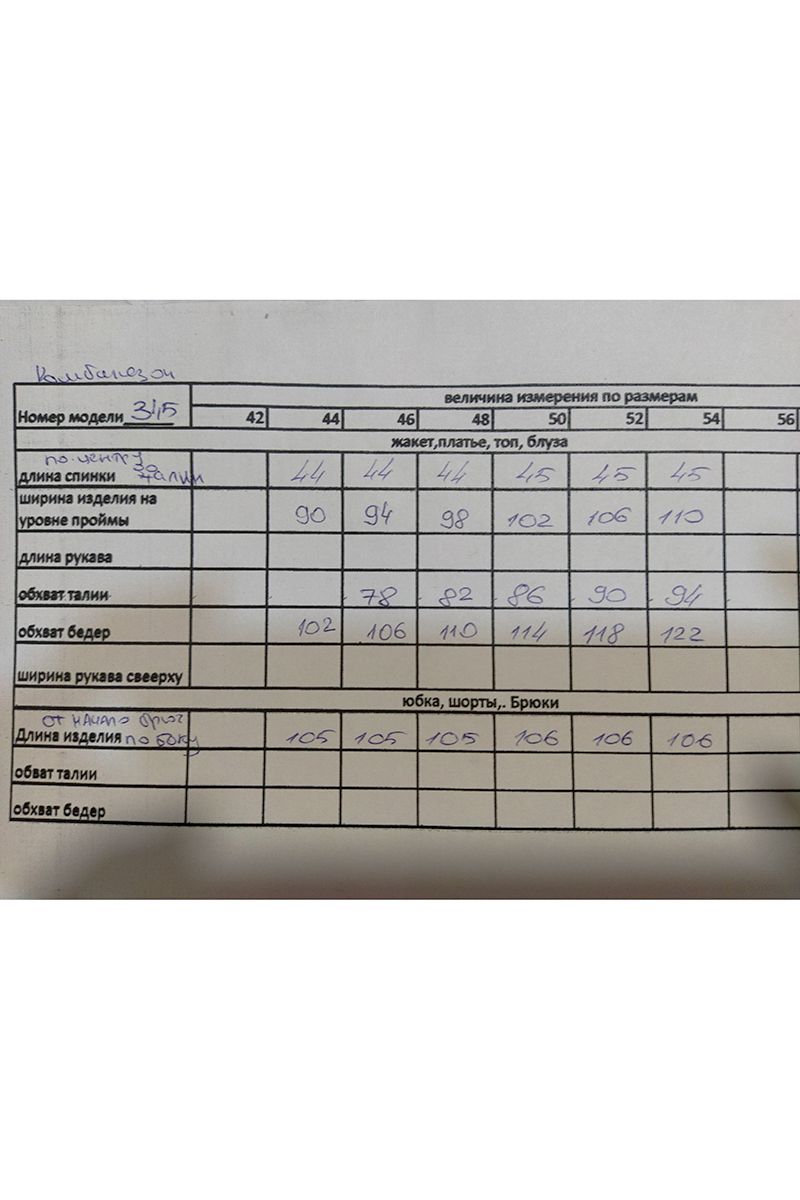 Комбинезон
величина измерения по размерам
Номер модели 345 42 44 46 48 50 52 54 56
жакет,платье, топ, блуза
по центру
длина спинки до талии 44 44 44 45 45 45
ширина изделия на
уровне проймы 90 94 98 102 106 110
длина рукава
обхват талии 78 82 86 90 94
обхват бедер 102 106 110 114 118 122
ширина рукава свеерху
юбка, шорты,. Брюки
от начало брюк
Длина изделия по боку 105 105 105 106 106 106
обват талии
обхват бедер